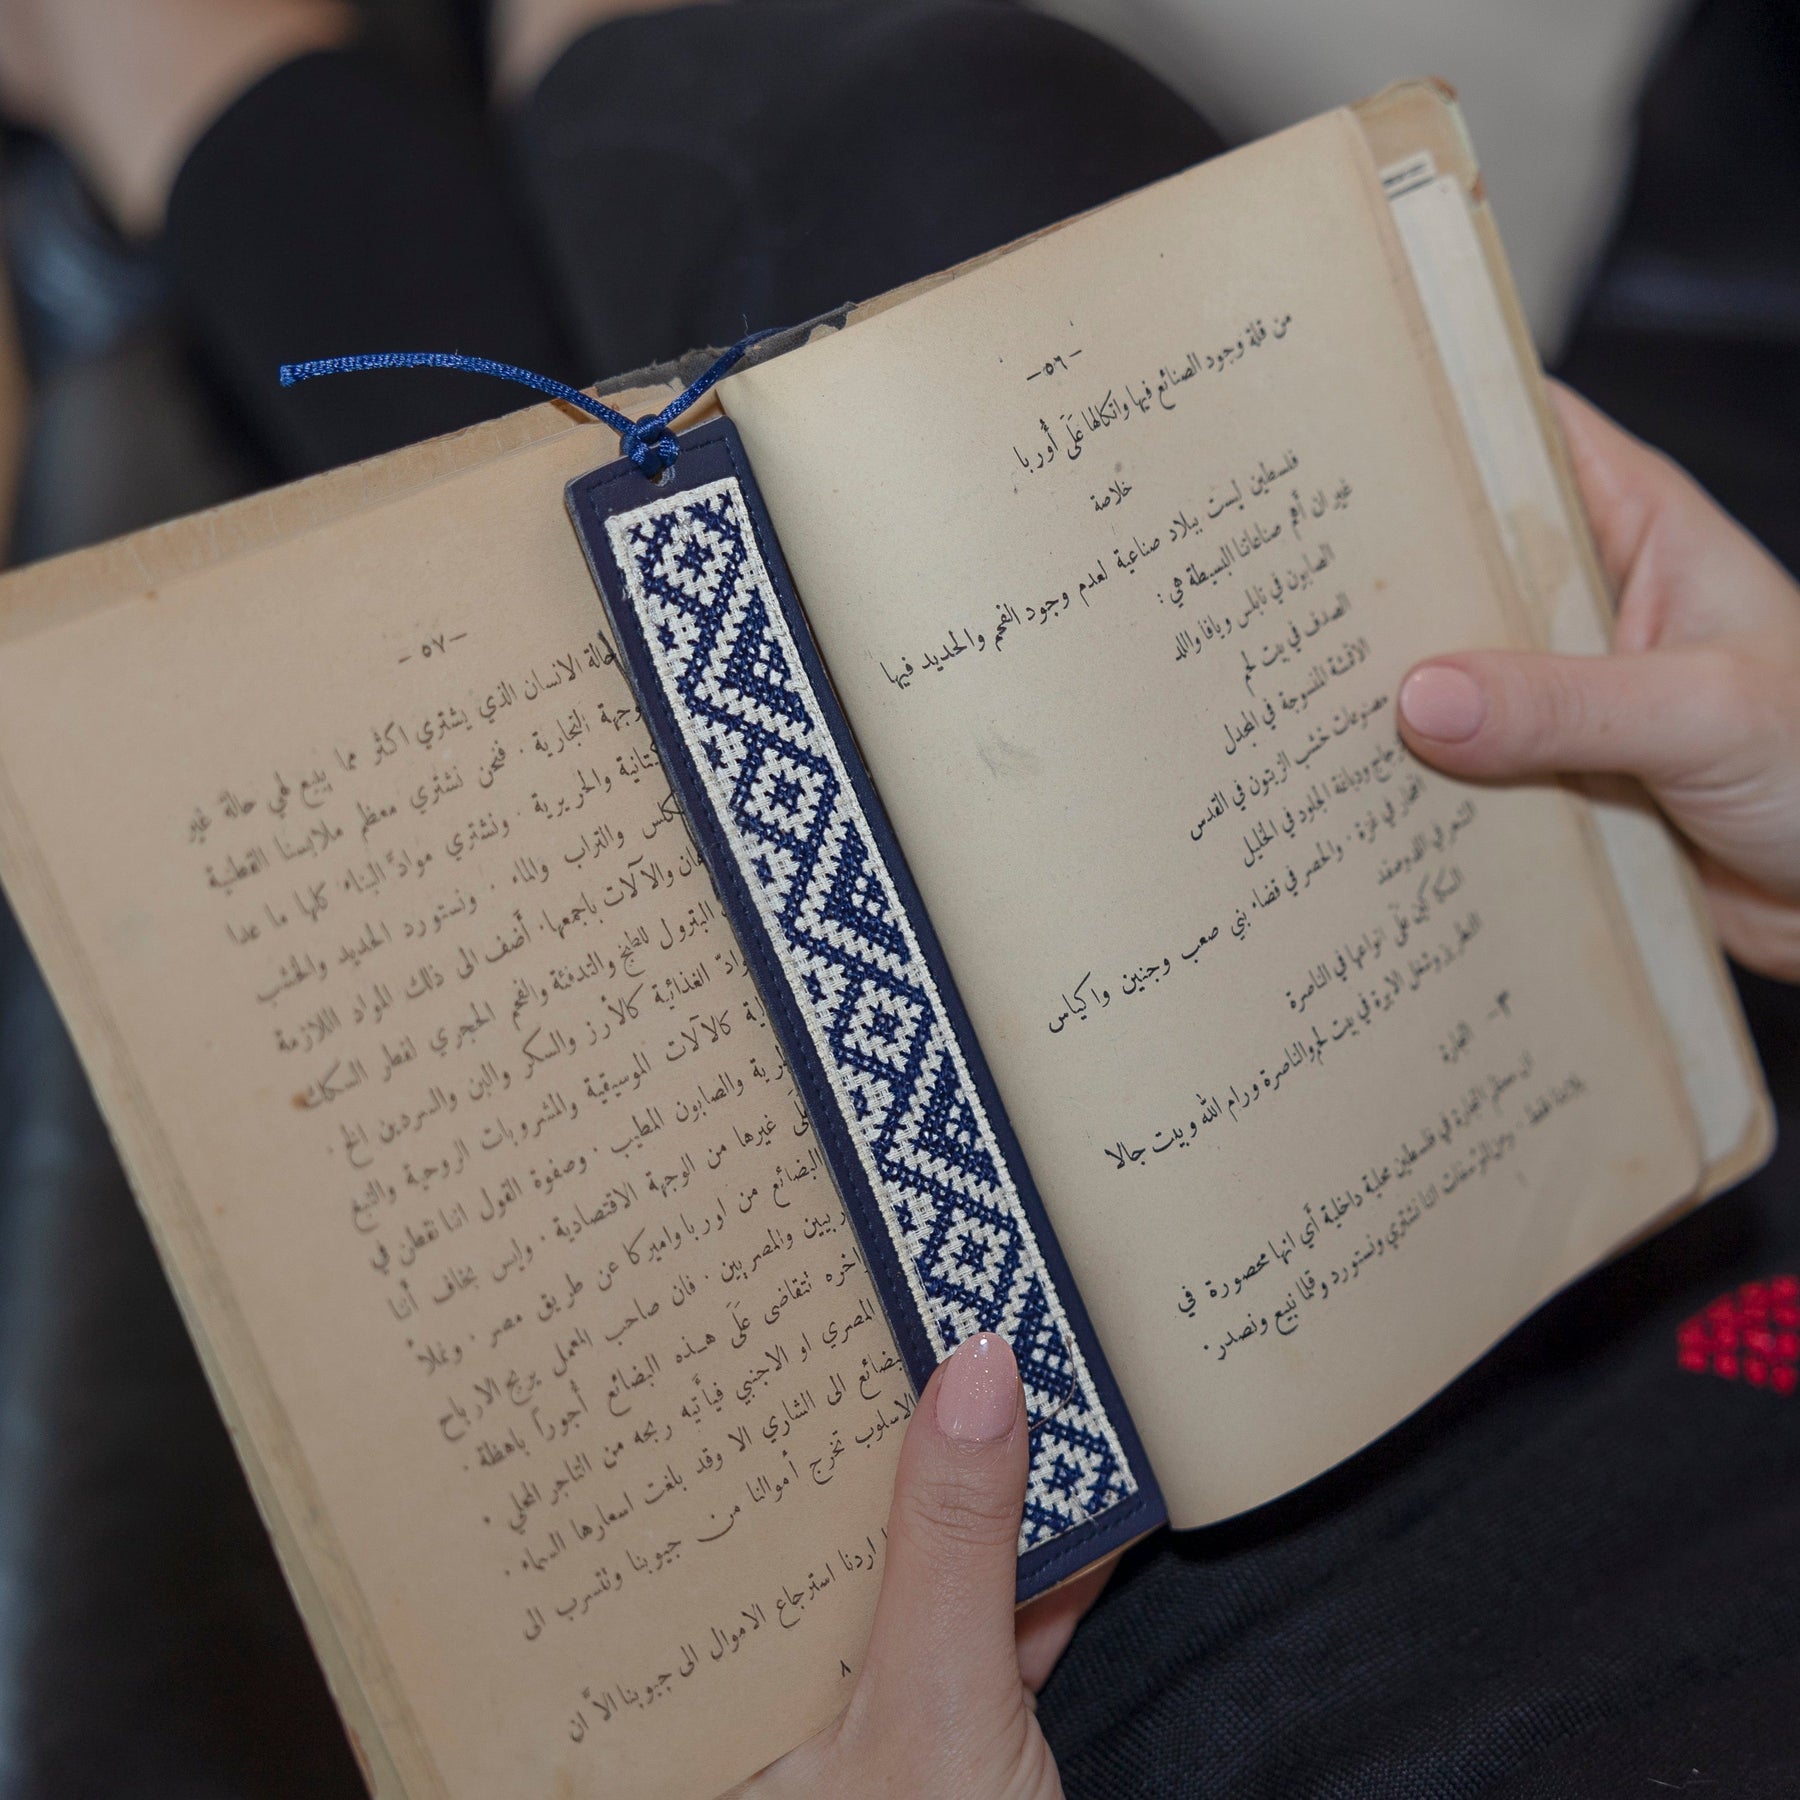 — ٥٦ —
من قلة وجود الصنائع فيها واتكالها عَلَى أُوربا
خلاصة
فلسطين ليست ببلاد صناعية لعدم وجود الفحم والحديد فيها
غير ان أهم صناعاتنا البسيطة هي :
الصابون في نابلس ويافا واللد
الصدف في بيت لحم
الاقمشة المنسوجة في المجدل
مصنوعات خشب الزيتون في القدس
زجاج ودباغة الجلود في الخليل
الفخار في غزة . والحصر في قضاء بني صعب وجنين واكياس
الشعر في اللد وصفد
السكاكين عَلَى انواعها في الناصرة
التطريز وشغل الابرة في بيت لحم والناصرة ورام الله وبيت جالا
٣ — التجارة
ان معظم التجارة في فلسطين محلية داخلية أي انها محصورة في
فقط . ومن المؤسفات اننا نشتري ونستورد وقلما نبيع ونصدر .
— ٥٧ —
حالة الانسان الذي يشتري اكثر مما يبيع لهي حالة غير
وجهة التجارية . فنحن نشتري معظم ملابسنا القطنية
والحريرية . ونشتري موادّ البناء كلها ما عدا
والتراب والماء . ونستورد الحديد والخشب
والآلات باجمعها . أضف الى ذلك المواد اللازمة
البترول للطبخ والتدفئة والفحم الحجري لقطر السكك
الغذائية كالأرز والسكر والبن والسردين الخ .
كالآلات الموسيقية والمشروبات الروحية والتبغ
والصابون المطيب . وصفوة القول اننا نقطن في
عَلَى غيرها من الوجهة الاقتصادية . وليس بخاف أننا
البضائع من اوربا واميركا عن طريق مصر . وفضلاً
والمصريين . فان صاحب المعمل يربح الارباح
تتقاضى عَلَى هذه البضائع أجوراً باهظة .
المصري او الاجنبي فيأتيه ربحه من التاجر المحلي .
الى الشاري الا وقد بلغت اسعارها السماء .
الاسلوب تخرج أموالنا من جيوبنا وتتسرب الى
اردنا استرجاع الاموال الى جيوبنا الاّ ان
٨